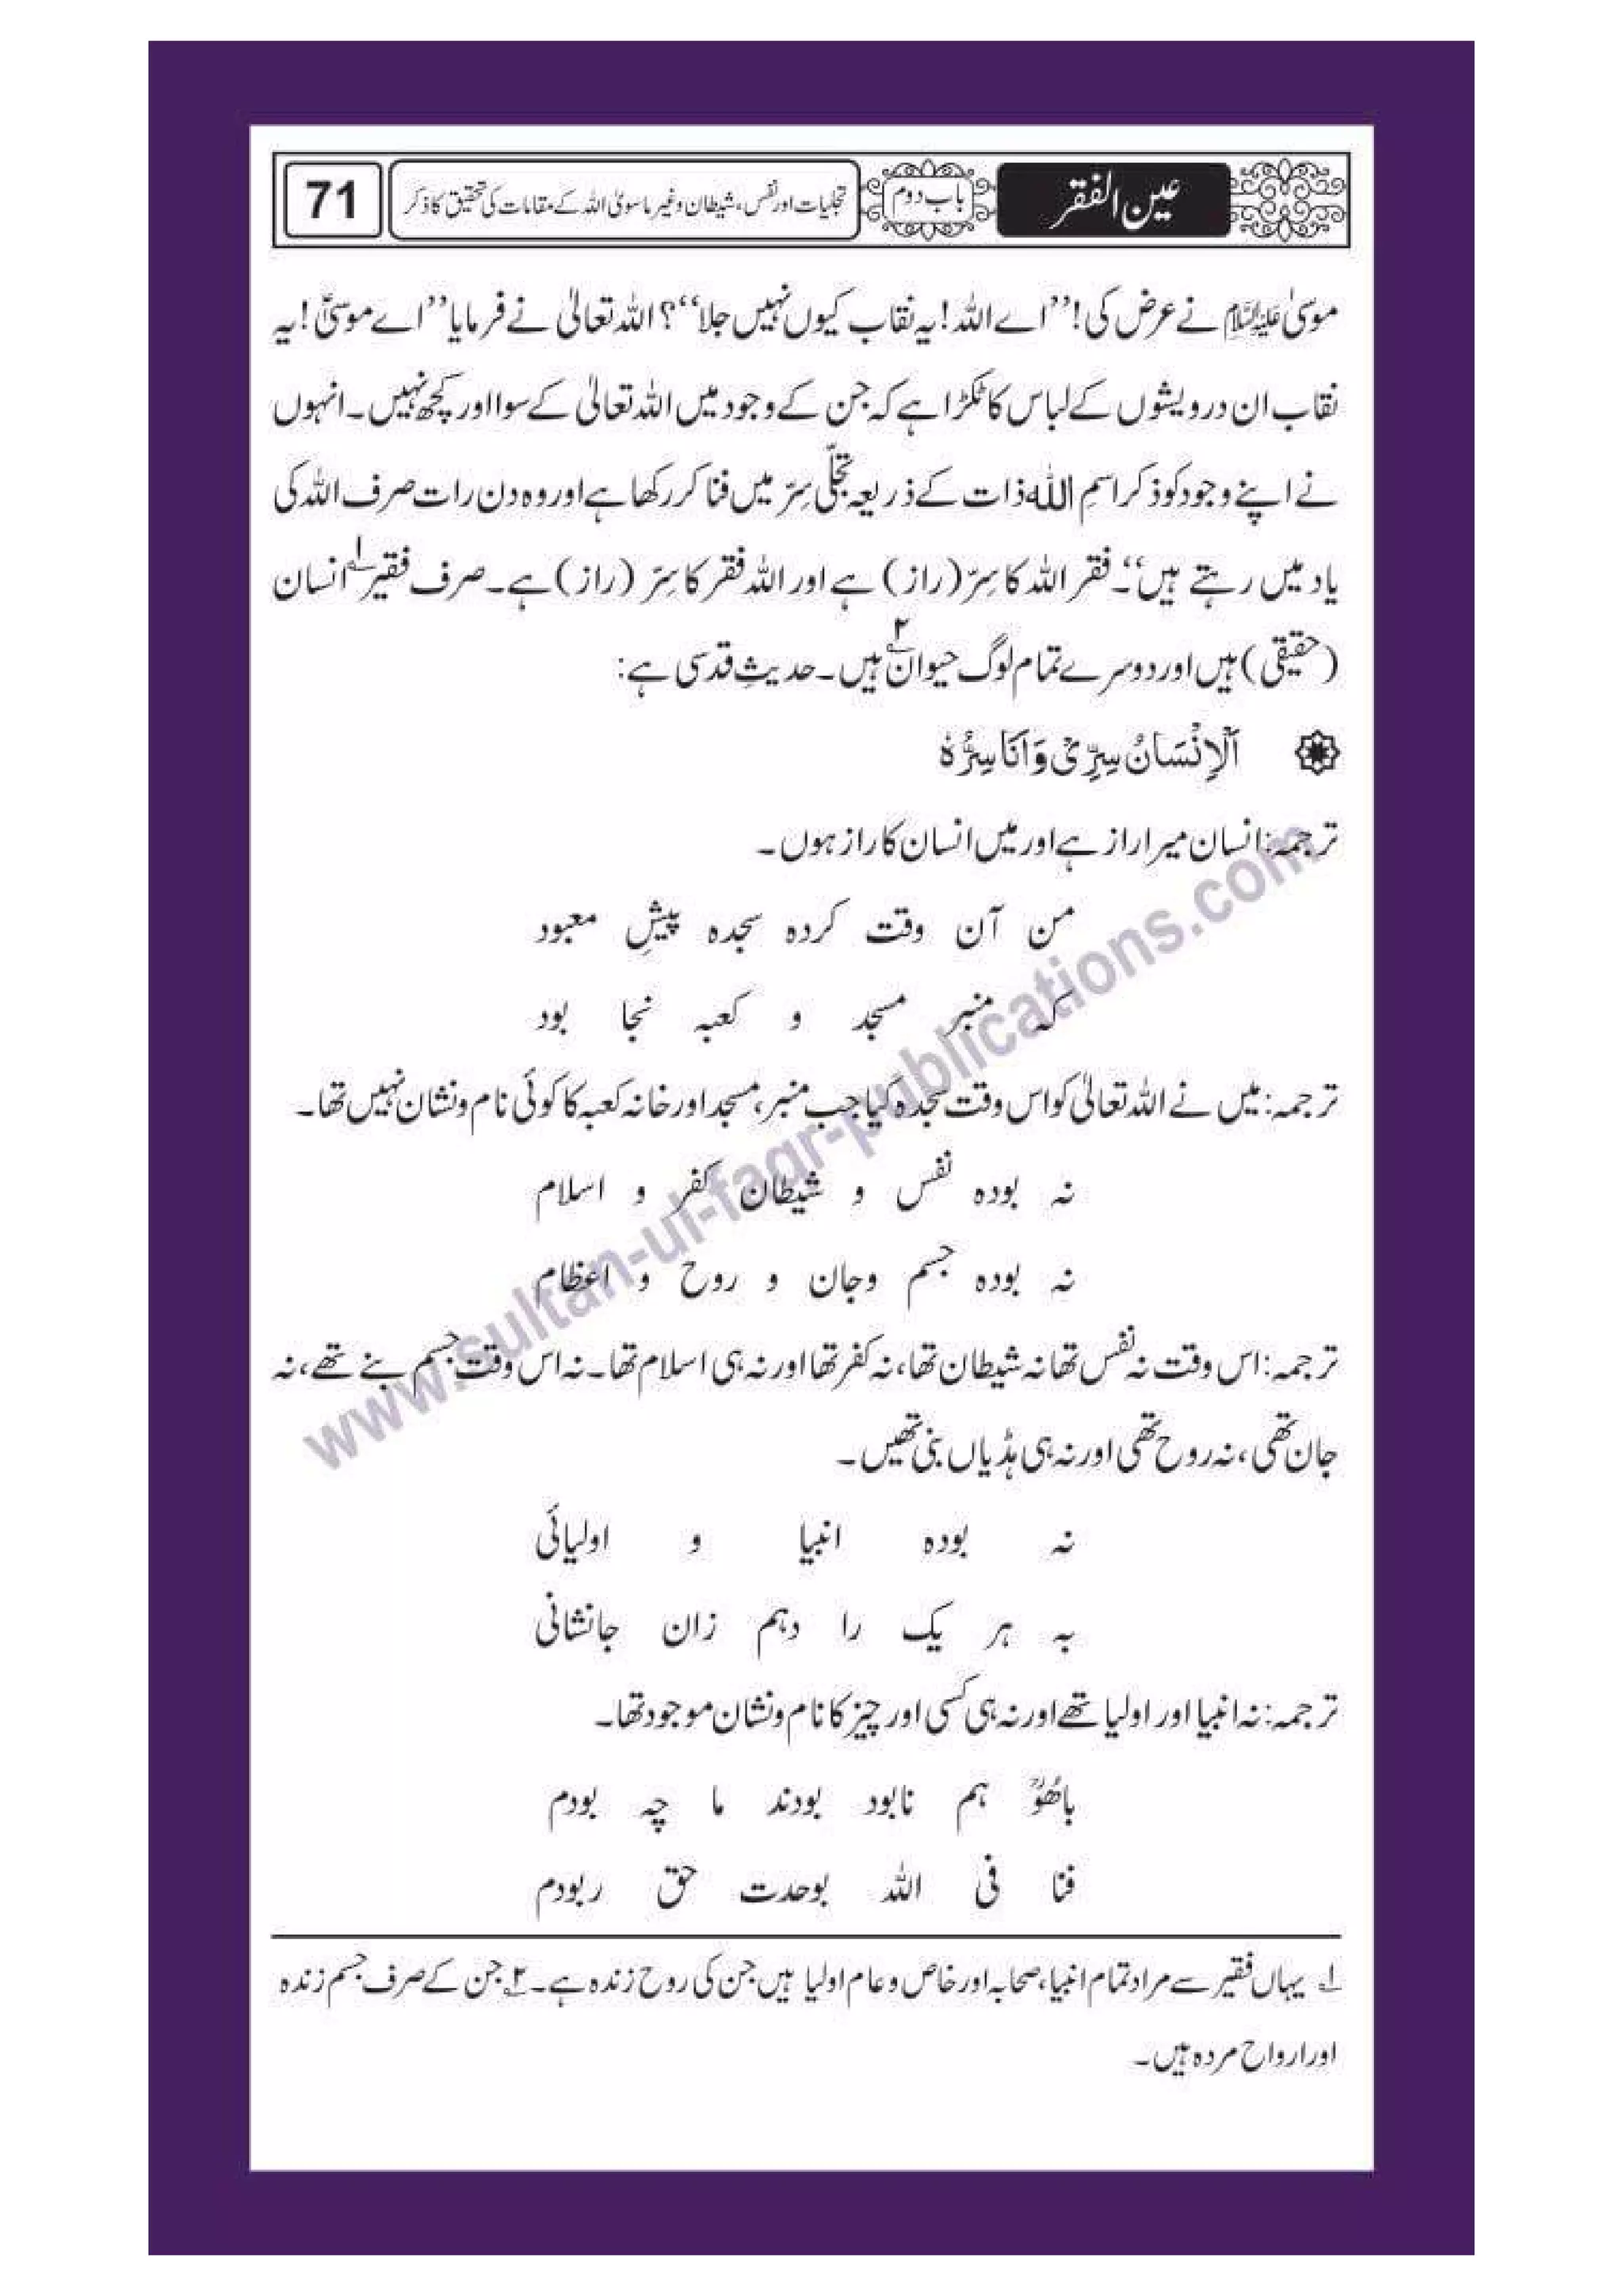 عین الفقر
باب دوم
تجلیات اور نفس، شیطان وغیر ماسویٰ اللہ کے مقامات کی تحقیق کا ذکر
71
موسیٰ علیہ السلام نے عرض کی! ’’اے اللہ! یہ نقاب کیوں نہیں جلا‘‘؟ اللہ تعالیٰ نے فرمایا ’’اے موسیٰؑ! یہ
نقاب ان درویشوں کے لباس کا ٹکڑا ہے کہ جن کے وجود میں اللہ تعالیٰ کے سوا اور کچھ نہیں۔ انہوں
نے اپنے وجود کو ذکر اسمِ اللہ ذات کے ذریعہ تجلّی سِرّ میں فنا کر رکھا ہے اور وہ دن رات صرف اللہ کی
یاد میں رہتے ہیں‘‘۔ فقر اللہ کا سِرّ (راز) ہے اور اللہ فقر کا سِرّ (راز) ہے۔ صرف فقیر۱؎ انسان
(حقیقی) ہیں اور دوسرے تمام لوگ حیوان۲؎ ہیں۔ حدیثِ قدسی ہے:
اَلْاِنْسَانُ سِرِّیْ وَ اَنَا سِرُّہٗ
ترجمہ: انسان میرا راز ہے اور میں انسان کا راز ہوں۔
من آن وقت کردہ سجدہ پیشِ معبود
کہ منبر مسجد و کعبہ نجا بود
ترجمہ: میں نے اللہ تعالیٰ کو اس وقت سجدہ کیا جب منبر، مسجد اور خانہ کعبہ کا کوئی نام و نشان نہیں تھا۔
نہ بودہ نفس و شیطان کفر و اسلام
نہ بودہ جسم وجان و روح و اعظام
ترجمہ: اس وقت نہ نفس تھا نہ شیطان تھا، نہ کفر تھا اور نہ ہی اسلام تھا۔ نہ اس وقت جسم بنے تھے، نہ
جان تھی، نہ روح تھی اور نہ ہی ہڈیاں بنی تھیں۔
نہ بودہ انبیا و اولیائی
بہ ہر یک را دہم زان جانشانی
ترجمہ: نہ انبیا اور اولیا تھے اور نہ ہی کسی اور چیز کا نام و نشان موجود تھا۔
باھُوؒ ہم نابود بودند ما چہ بودم
فنا فی اللہ بوحدت حق ربودم
۱؎ یہاں فقیر سے مراد تمام انبیا، صحابہ اور خاص و عام اولیا ہیں جن کی روح زندہ ہے۔ ۲؎ جن کے صرف جسم زندہ
اور ارواح مردہ ہیں۔
www.sultan-ul-faqr-publications.com